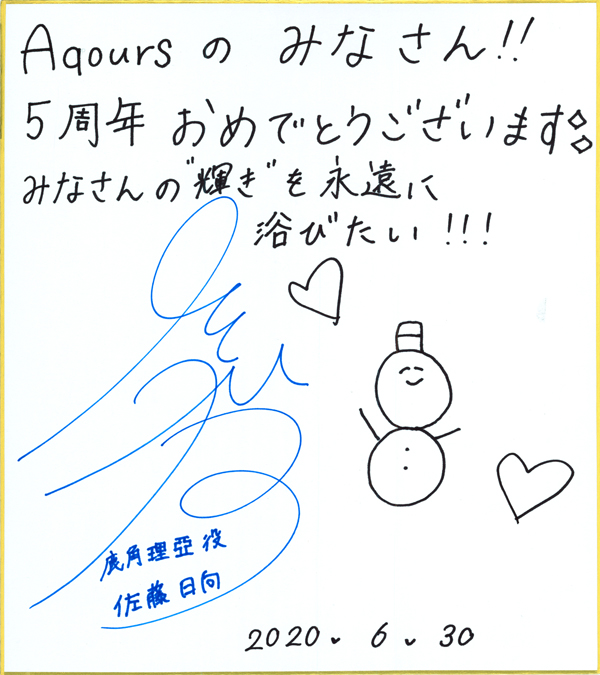 Aqoursの みなさん!!
5周年 おめでとうございます
みなさんの"輝き"を永遠に
浴びたい!!!
鹿角理亞役
佐藤日向
2020. 6. 30